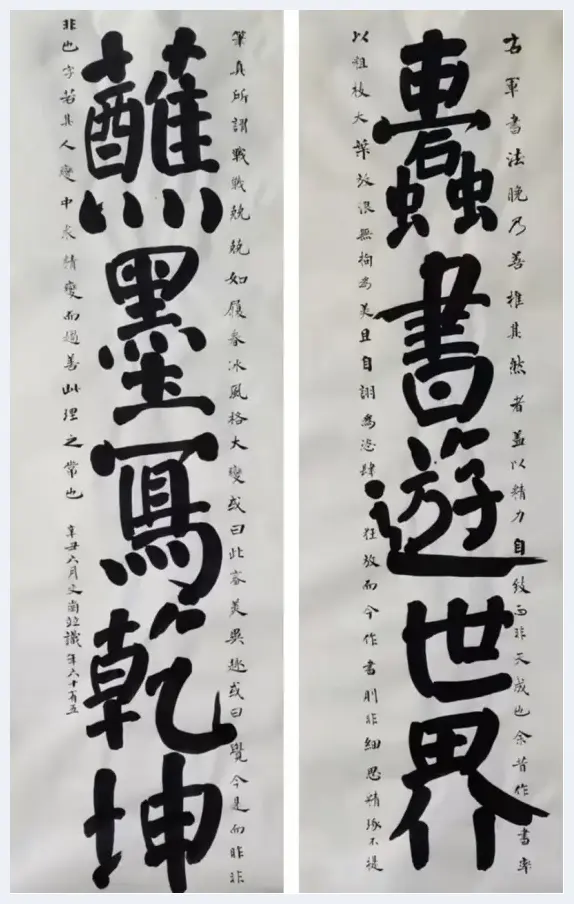 右軍書法晚乃善惟其然者蓋以精力自致而非天成也余昔作書率
蠹書遊世界
以粗枝大葉放浪無拘為美且自詡為恣肆狂放而今作書則非細思精琢不提
筆真所謂戰戰兢兢如履春冰風格大變或曰此審美異趣或曰覺今是而昨非
蘸墨寫乾坤
非也字若其人變中求精變而過善此理之常也 辛丑六月文南並識年六十有五